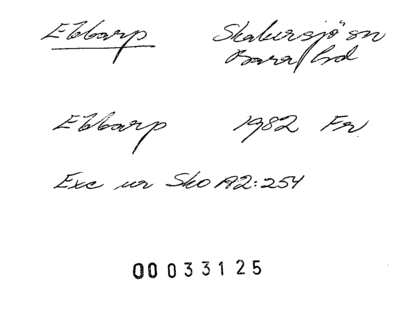 Ebbarp Skabersjö sn
Bara hd
Ebbarp 1982 Fr
Exc ur Sko A2:254
00033125